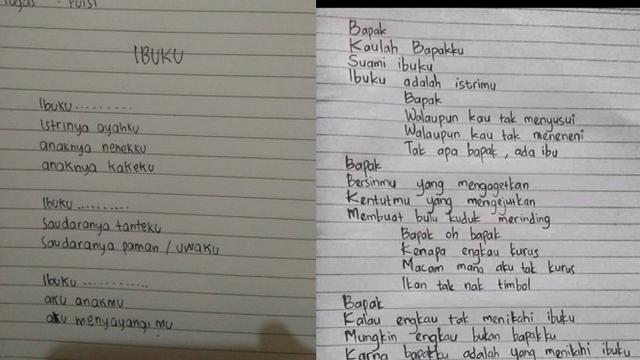 Tugas - PUISI
IBUKU
Ibuku.........
Istrinya ayahku
anaknya nenekku
anaknya kakeku
Ibuku..........
Saudaranya tanteku
Saudaranya paman / uwaku
Ibuku.............
aku anakmu
aku menyayangi mu
Bapak
Kaulah Bapakku
Suami ibuku
Ibuku adalah istrimu
Bapak
Walaupun kau tak menyusui
Walaupun kau tak meneneni
Tak apa bapak, ada ibu
Bapak
Bersinmu yang mengagetkan
Kentutmu yang mengejutkan
Membuat bulu kuduk merinding
Bapak oh bapak
Kenapa engkau kurus
Macam mana aku tak kurus
Ikan tak nak timbol
Bapak
Kalau engkau tak menikahi ibuku
Mungkin engkau bukan bapakku
Karna bapakku adalah yang menikahi ibuku